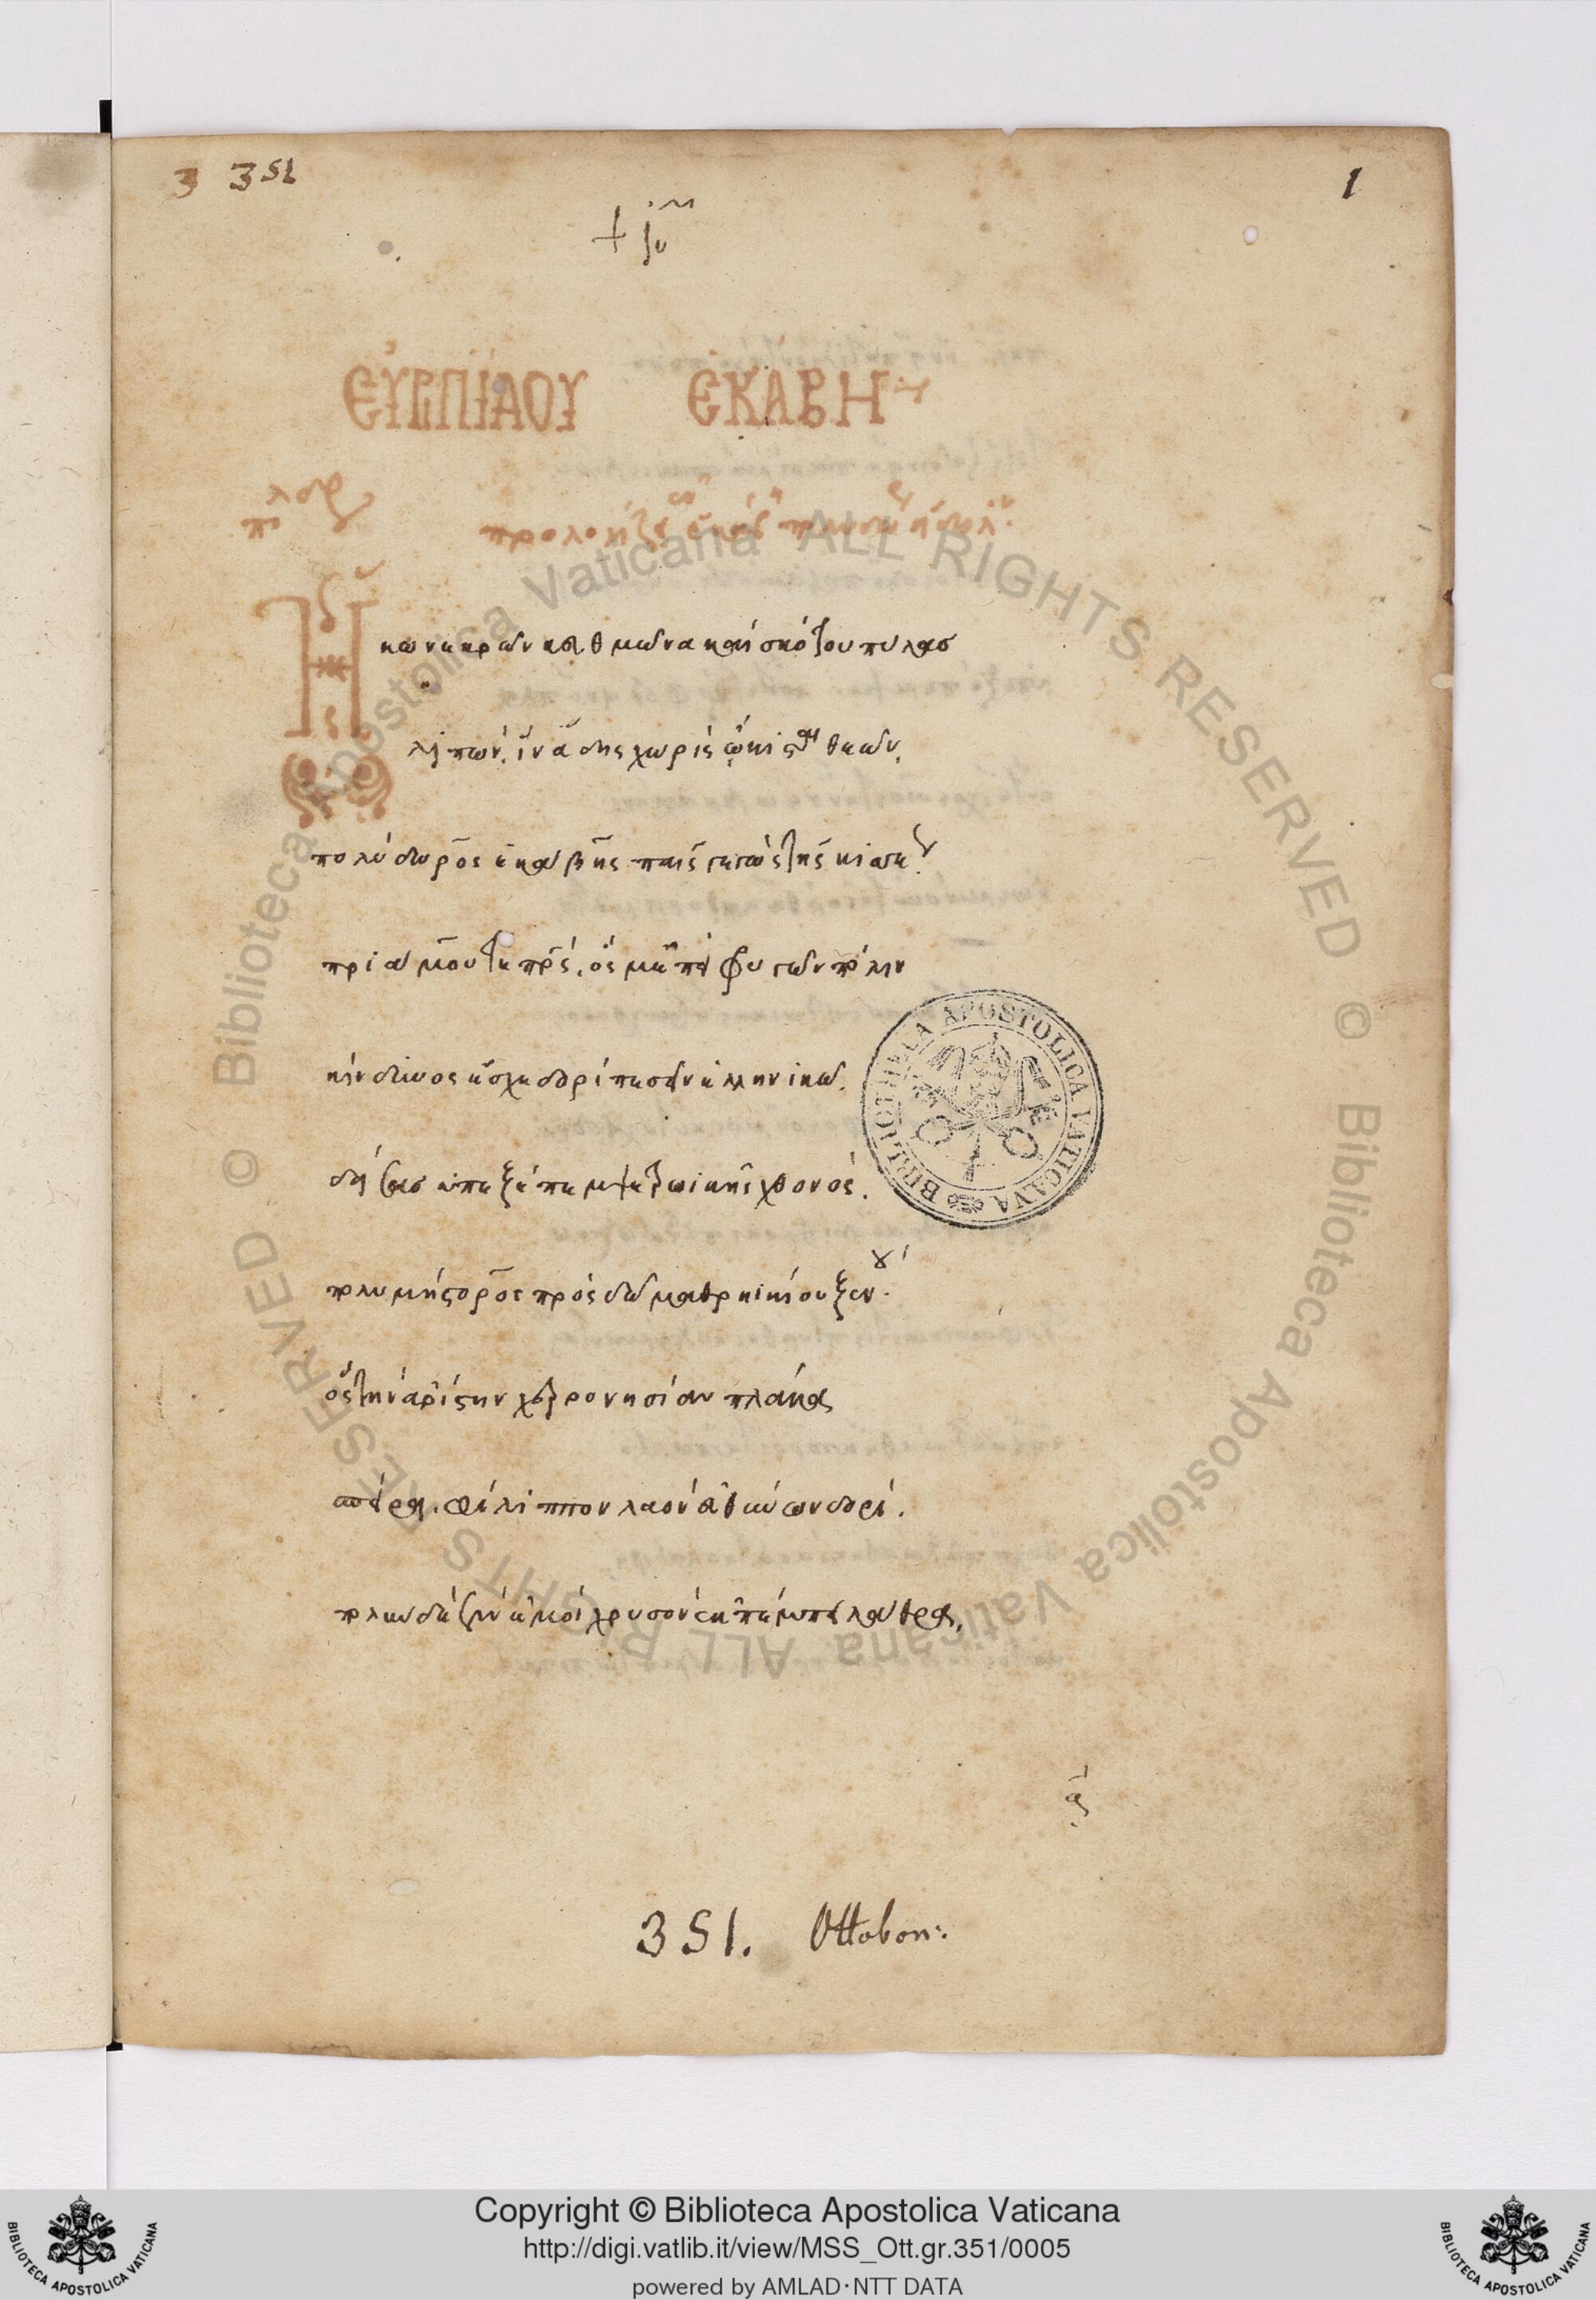 3 351
1
+ ἰυ
ΕΥΡΙΠΙΔΟΥ ΕΚΑΒΗ
Ηκω νεκρῶν κευθμῶνα καὶ σκότου πύλασ
λιπών. ἵν' ἅδης χωρὶς ᾤκισται θεῶν.
πολύδωρος ἑκάβης παῖς γεγὼς τῆς κισσέως.
πριάμου τε πρς. ὅς μ' ἐπεὶ φρυγῶν πόλιν
κίνδυνος ἔσχε δορὶ πεσεῖν ἑλληνικῶ.
δείσας ὑπεξέπεμψε τρωικῆς χθονός.
πολυμήστορος πρὸς δῶμα θρηικίου ξένου.
ὃς τὴν ἀρίστην χερρονησίαν πλάκα
σπείρει. φίλιππον λαὸν εὐθύνων δορί.
πολὺν δὲ σὺν ἐμοὶ χρυσὸν ἐκπέμπει λάθρα.
α
351. Ottobon:
BIBLIOTHECA APOSTOLICA VATICANA
© Biblioteca Apostolica Vaticana ALL RIGHTS RESERVED © Biblioteca Apostolica Vaticana ALL RIGHTS RESERVED
BIBLIOTECA APOSTOLICA VATICANA
Copyright © Biblioteca Apostolica Vaticana
http://digi.vatlib.it/view/MSS_Ott.gr.351/0005
powered by AMLAD·NTT DATA
BIBLIOTECA APOSTOLICA VATICANA